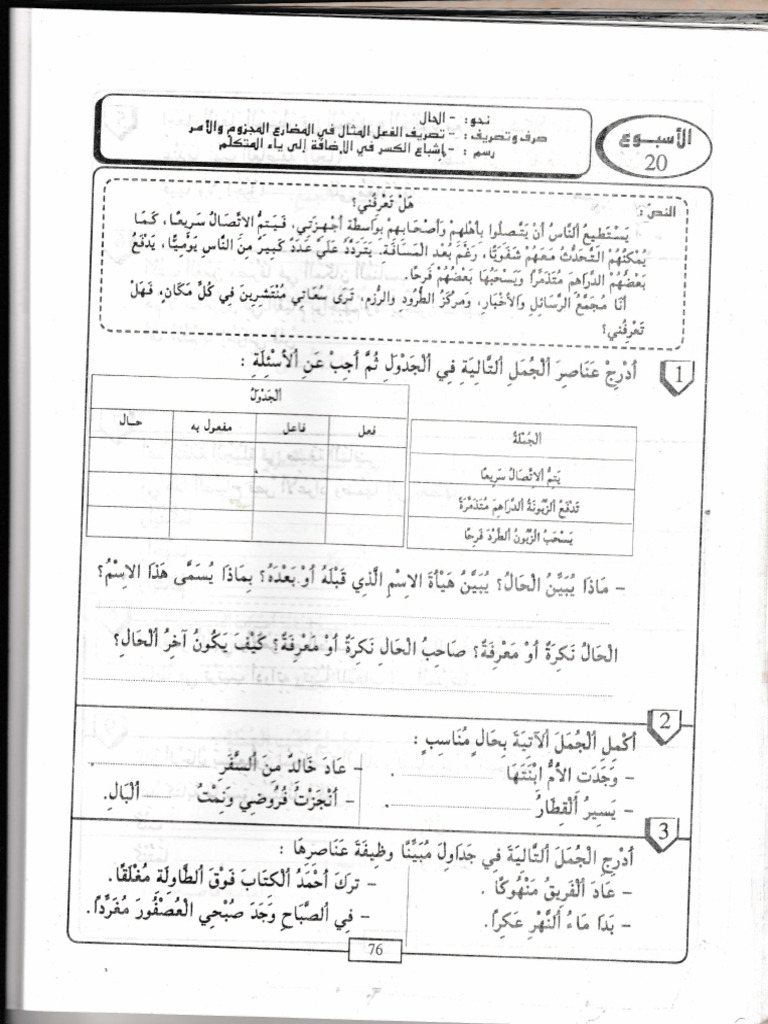 الأسبوع
20
نحو: - الحال
صرف وتصريف: - تصريف الفعل المثال في المضارع المجزوم والأمر
رسم: - إشباع الكسر في الإضافة إلى ياء المتكلم
النص:
هَلْ تَعْرِفُنِي؟
يَسْتَطِيعُ النَّاسُ أَنْ يَتَّصِلُوا بِأَهْلِهِمْ وَأَصْحَابِهِمْ بِوَاسِطَةِ أَجْهِزَتِي، فَيَتِمُّ الاِتِّصَالُ سَرِيعًا، كَمَا
يُمْكِنُهُمُ التَّحَدُّثُ مَعَهُمْ شَفَوِيًّا، رَغْمَ بُعْدِ الْمَسَافَةِ. يَتَرَدَّدُ عَلَيَّ عَدَدٌ كَبِيرٌ مِنَ النَّاسِ يَوْمِيًّا، يَدْفَعُ
بَعْضُهُمُ الدَّرَاهِمَ مُتَذَمِّرًا وَيَسْحَبُهَا بَعْضُهُمْ فَرِحًا.
أَنَا مُجَمَّعُ الرَّسَائِلِ وَالأَخْبَارِ، وَمَرْكَزُ الطُّرُودِ وَالرِّزَمِ، تَرَى سُعَاتِي مُنْتَشِرِينَ فِي كُلِّ مَكَانٍ، فَهَلْ
تَعْرِفُنِي؟
1
أَدْرِجْ عَنَاصِرَ الْجُمَلِ التَّالِيَةِ فِي الْجَدْوَلِ ثُمَّ أَجِبْ عَنِ الأَسْئِلَةِ :
الْجَدْوَلُ
الْجُمْلَةُ
فعل فاعل مفعول به حال
يَتِمُّ الاِتِّصَالُ سَرِيعًا
تَدْفَعُ الزَّبُونَةُ الدَّرَاهِمَ مُتَذَمِّرَةً
يَسْحَبُ الزَّبُونُ الطَّرْدَ فَرِحًا
- مَاذَا يُبَيِّنُ الْحَالُ؟ يُبَيِّنُ هَيْأَةَ الاِسْمِ الَّذِي قَبْلَهُ أَوْ بَعْدَهُ؟ بِمَاذَا يُسَمَّى هَذَا الاِسْمُ؟
الْحَالُ نَكِرَةٌ أَوْ مَعْرِفَةٌ؟ صَاحِبُ الْحَالِ نَكِرَةٌ أَوْ مَعْرِفَةٌ؟ كَيْفَ يَكُونُ آخِرُ الْحَالِ؟
2
أَكْمِلِ الْجُمَلَ الآتِيَةَ بِحَالٍ مُنَاسِبٍ :
- وَجَدَتِ الأُمُّ ابْنَتَهَا .......... .
- عَادَ خَالِدٌ مِنَ السَّفَرِ .......... .
- يَسِيرُ الْقِطَارُ ..........
- أَنْجَزْتُ فُرُوضِي وَنِمْتُ .......... الْبَالِ.
3
أَدْرِجِ الْجُمَلَ التَّالِيَةَ فِي جَدَاوِلَ مُبَيِّنًا وَظِيفَةَ عَنَاصِرِهَا :
- عَادَ الْفَرِيقُ مَنْهُوكًا .
- تَرَكَ أَحْمَدُ الْكِتَابَ فَوْقَ الطَّاوِلَةِ مُغْلَقًا.
- بَدَا مَاءُ النَّهْرِ عَكِرًا.
- فِي الصَّبَاحِ وَجَدَ صُبْحِي الْعُصْفُورَ مُغَرِّدًا.
76